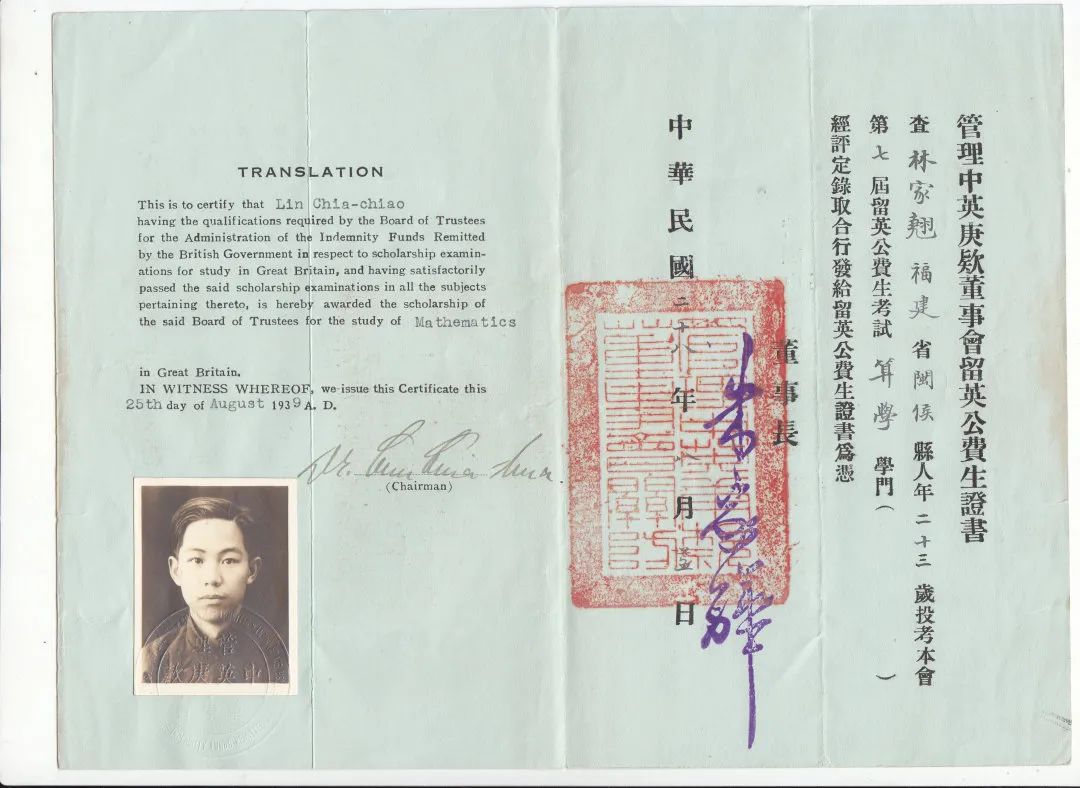 TRANSLATION
This is to certify that Lin Chia-chiao
having the qualifications required by the Board of Trustees
for the Administration of the Indemnity Funds Remitted
by the British Government in respect to scholarship examin-
ations for study in Great Britain, and having satisfactorily
passed the said scholarship examinations in all the subjects
pertaining thereto, is hereby awarded the scholarship of
the said Board of Trustees for the study of Mathematics
in Great Britain.
IN WITNESS WHEREOF, we issue this Certificate this
25th day of August 1939 A. D.
(Chairman)
管理中英庚欵董事會留英公費生證書
查林家翹福建省閩侯縣人年二十三歲投考本會
第七屆留英公費生考試算學學門（ ）
經評定錄取合行發給留英公費生證書爲憑
董事長
朱家驊
中華民國二十八年八月 日
管理
中英庚欵